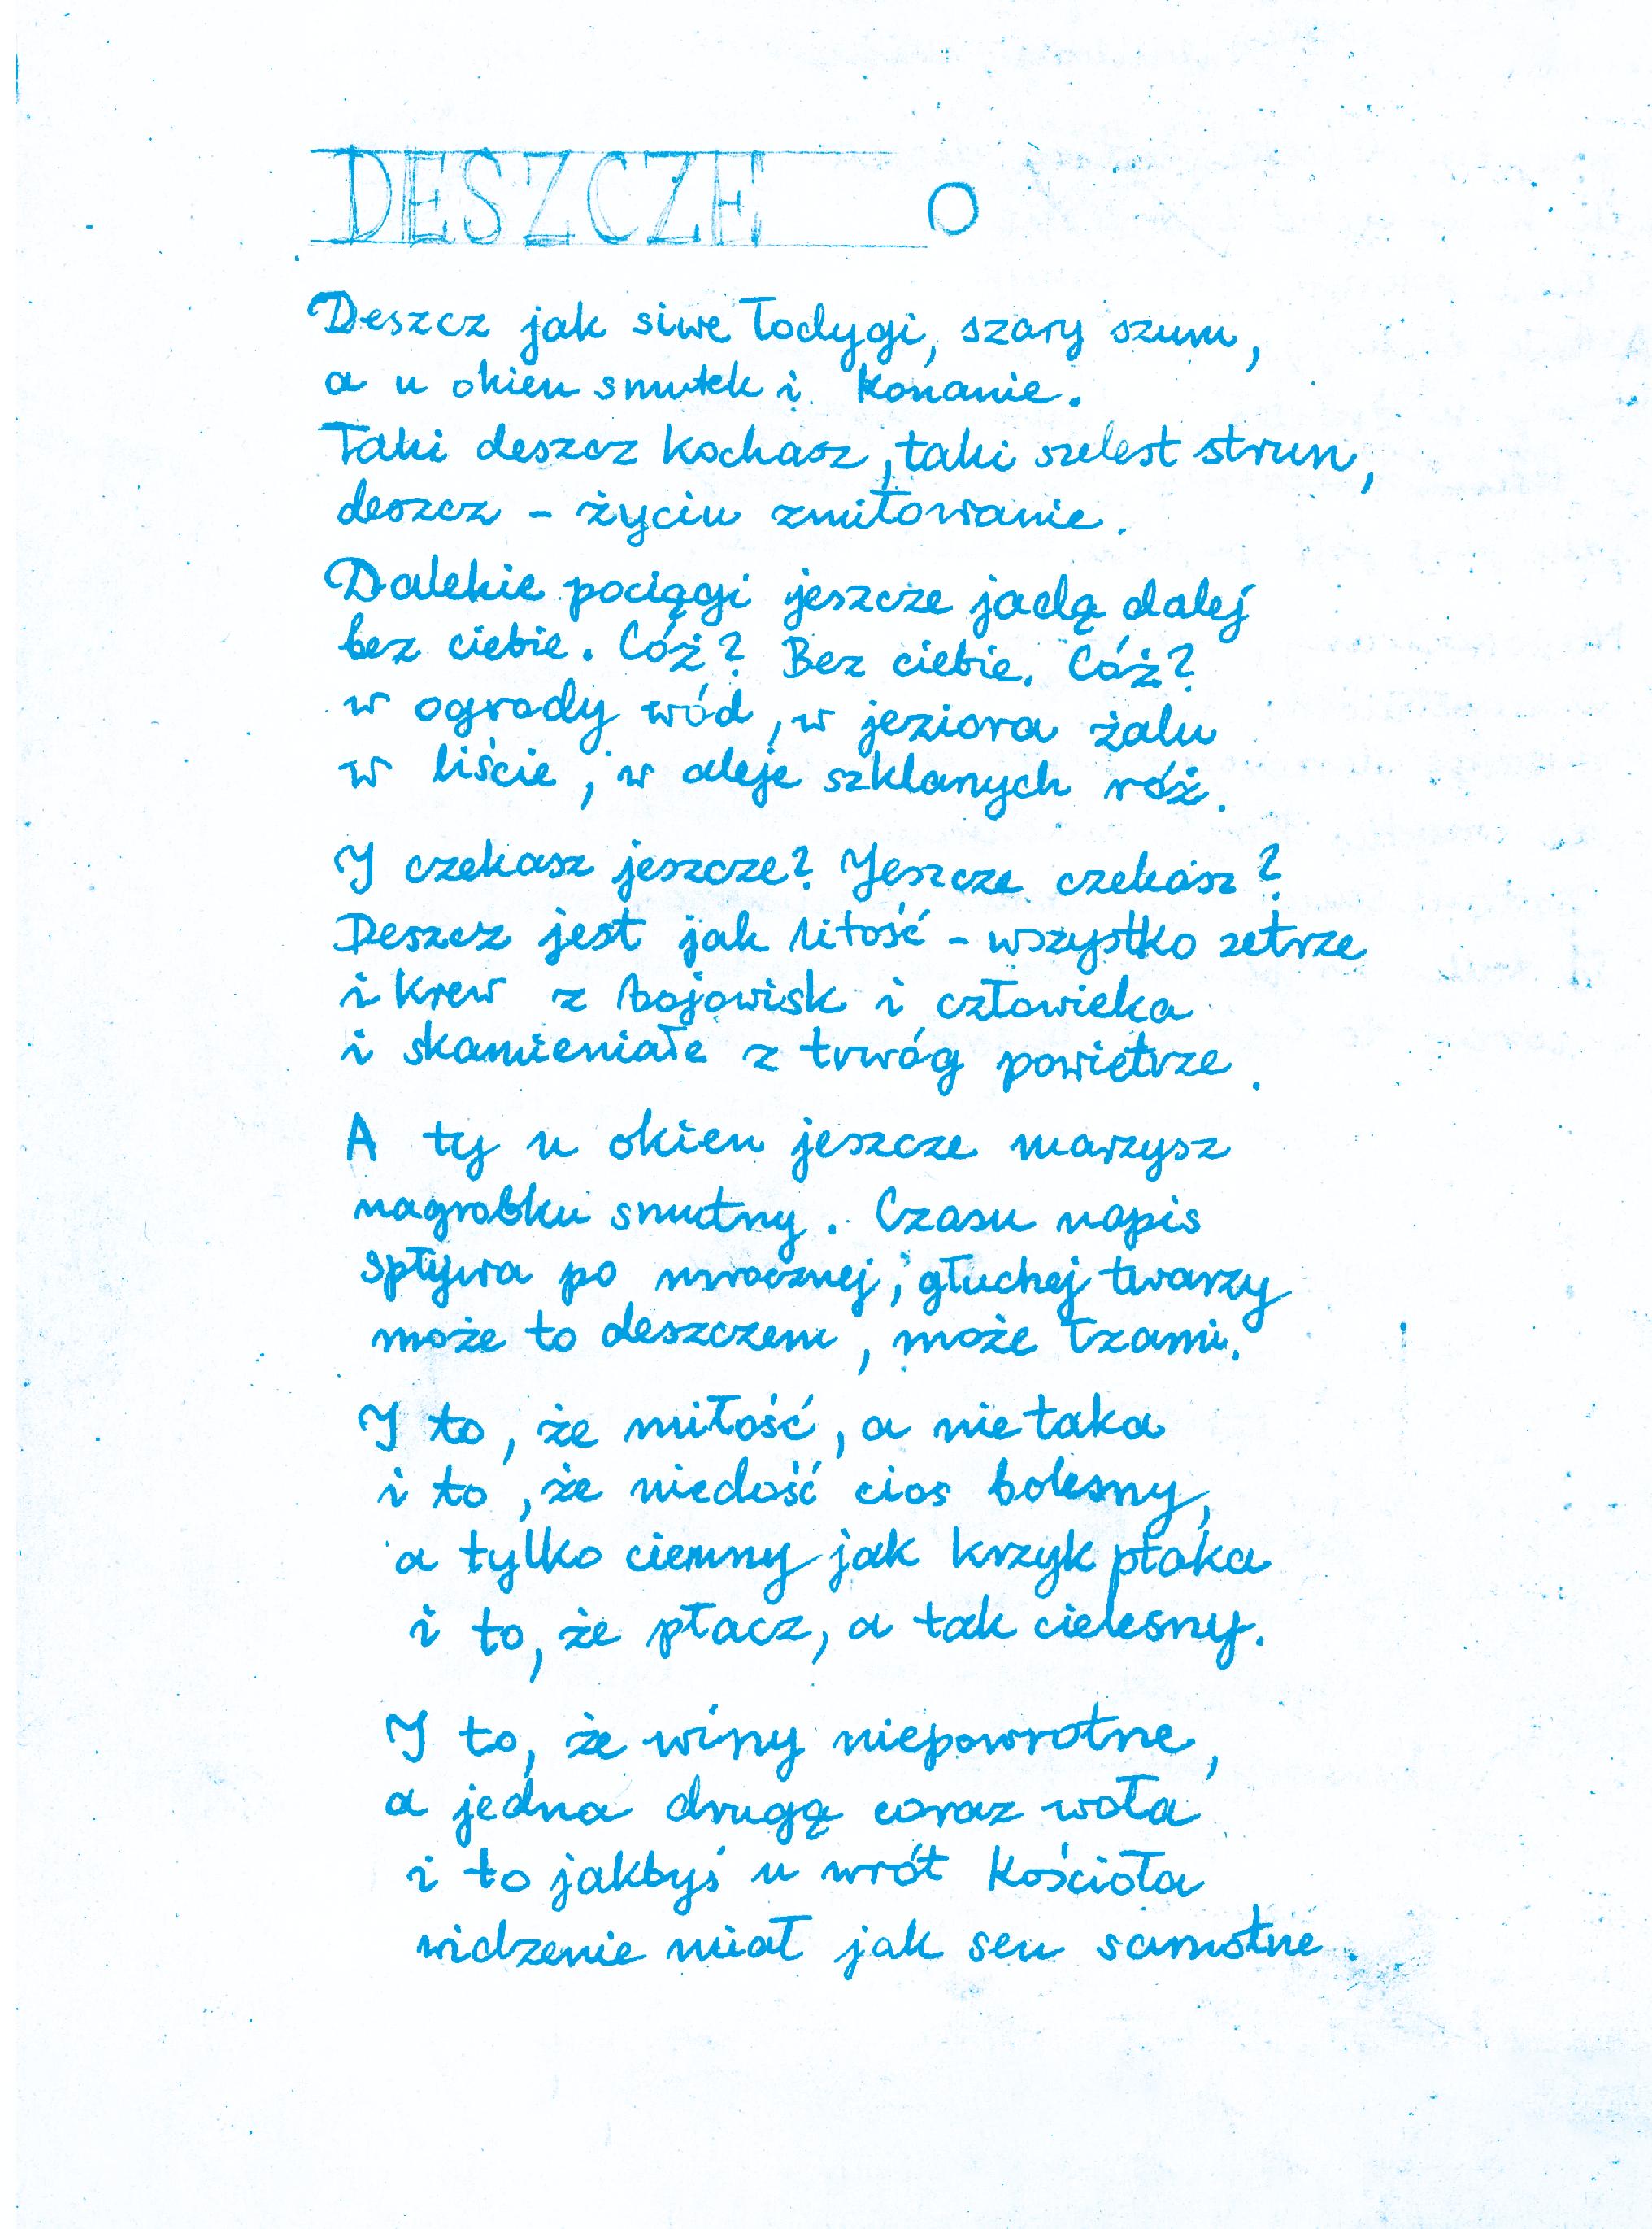 DESZCZE O
Deszcz jak siwe łodygi, szary szum,
a u okien smutek i konanie.
Taki deszcz kochasz, taki szelest strun,
deszcz - życiu zmiłowanie.
Dalekie pociągi jeszcze jadą dalej
bez ciebie. Cóż? Bez ciebie. Cóż?
w ogrody wód, w jeziora żalu
w liście, w aleje szklanych róż.
I czekasz jeszcze? Jeszcze czekasz?
Deszcz jest jak litość - wszystko zetrze
i krew z bojowisk i człowieka
i skamieniałe z trwóg powietrze.
A ty u okien jeszcze marzysz
nagrobku smutny. Czasu napis
spływa po mrocznej, głuchej twarzy
może to deszczem, może łzami.
I to, że miłość, a nie taka
i to, że niedość cios bolesny,
a tylko ciemny jak krzyk ptaka
i to, że płacz, a tak cielesny.
I to, że winy niepowrotne,
a jedna drugą coraz woła
i to jakbyś u wrót kościoła
widzenie miał jak sen samotne.